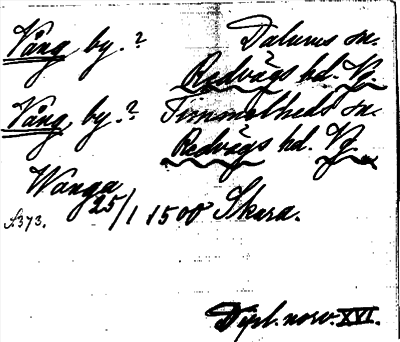 Vång by. ? Dalums sn.
Redvägs hd. Vg.
Vång by. ? Timmelheds sn.
Redvägs hd. Vg.
Wanga
25/1 1500 Skara.
A373.
Dipl. norv. XVI.